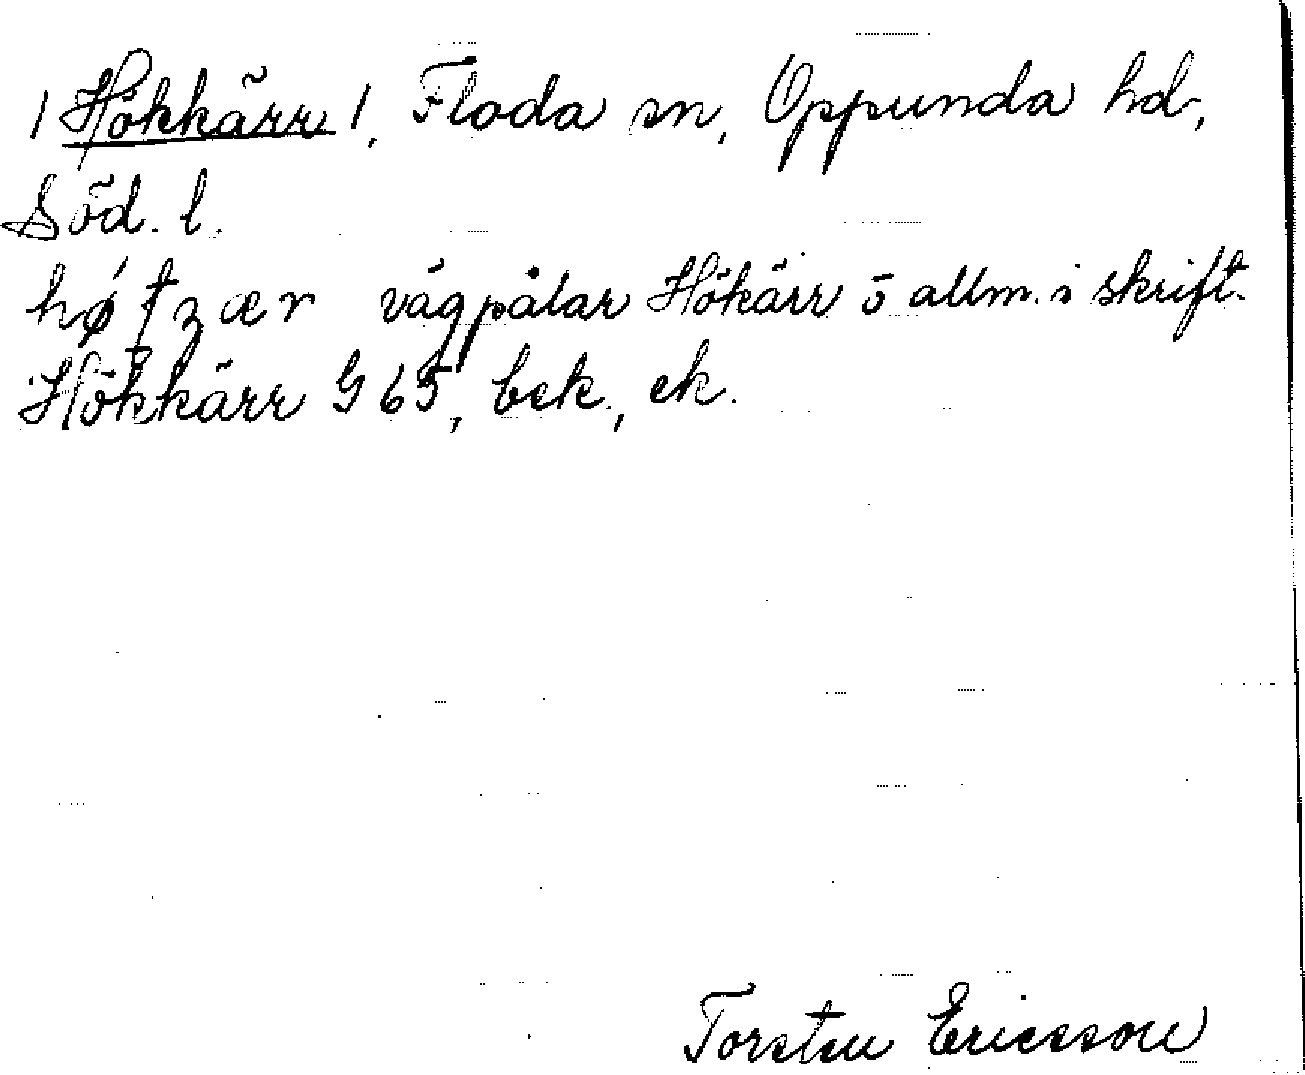 / Hökkärr /, Floda sn, Oppunda hd,
Söd. l.
vägpålar Hökärr o allm. i skrift.
Hökkärr G 65, bek., ek.
Torsten Ericsson